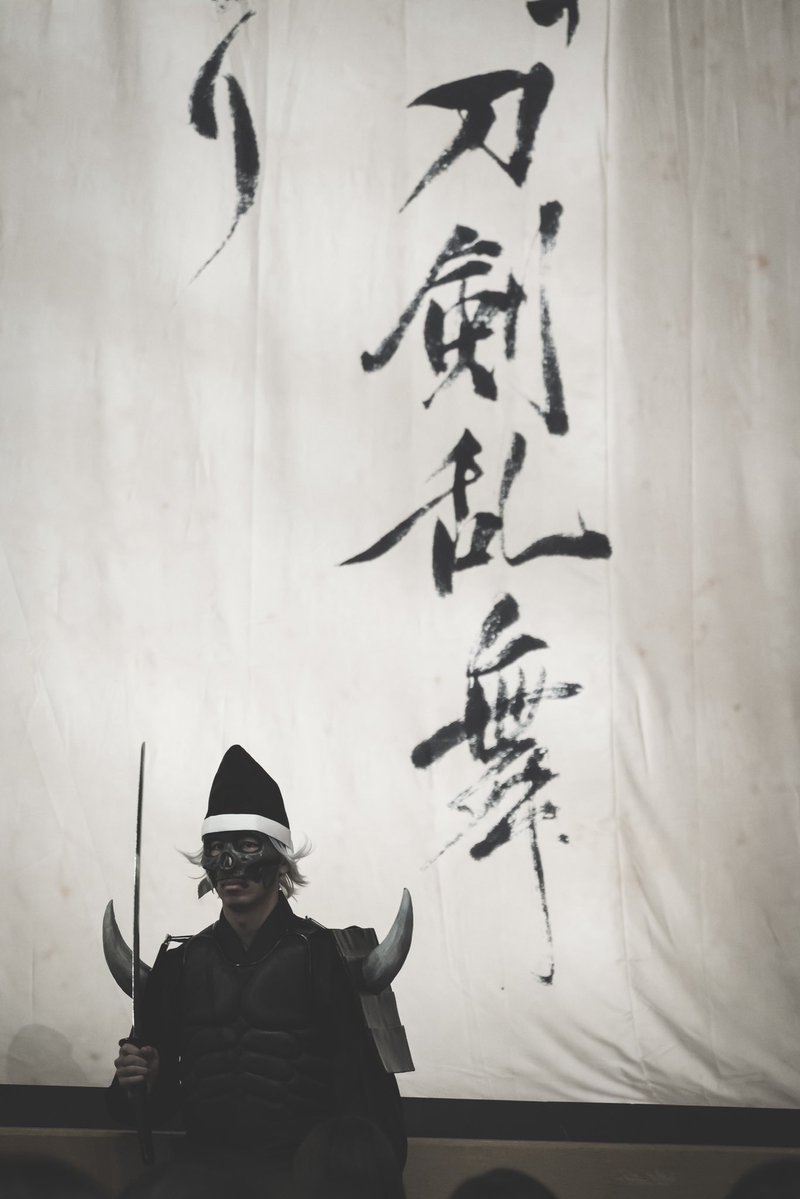 刀剣乱舞
り